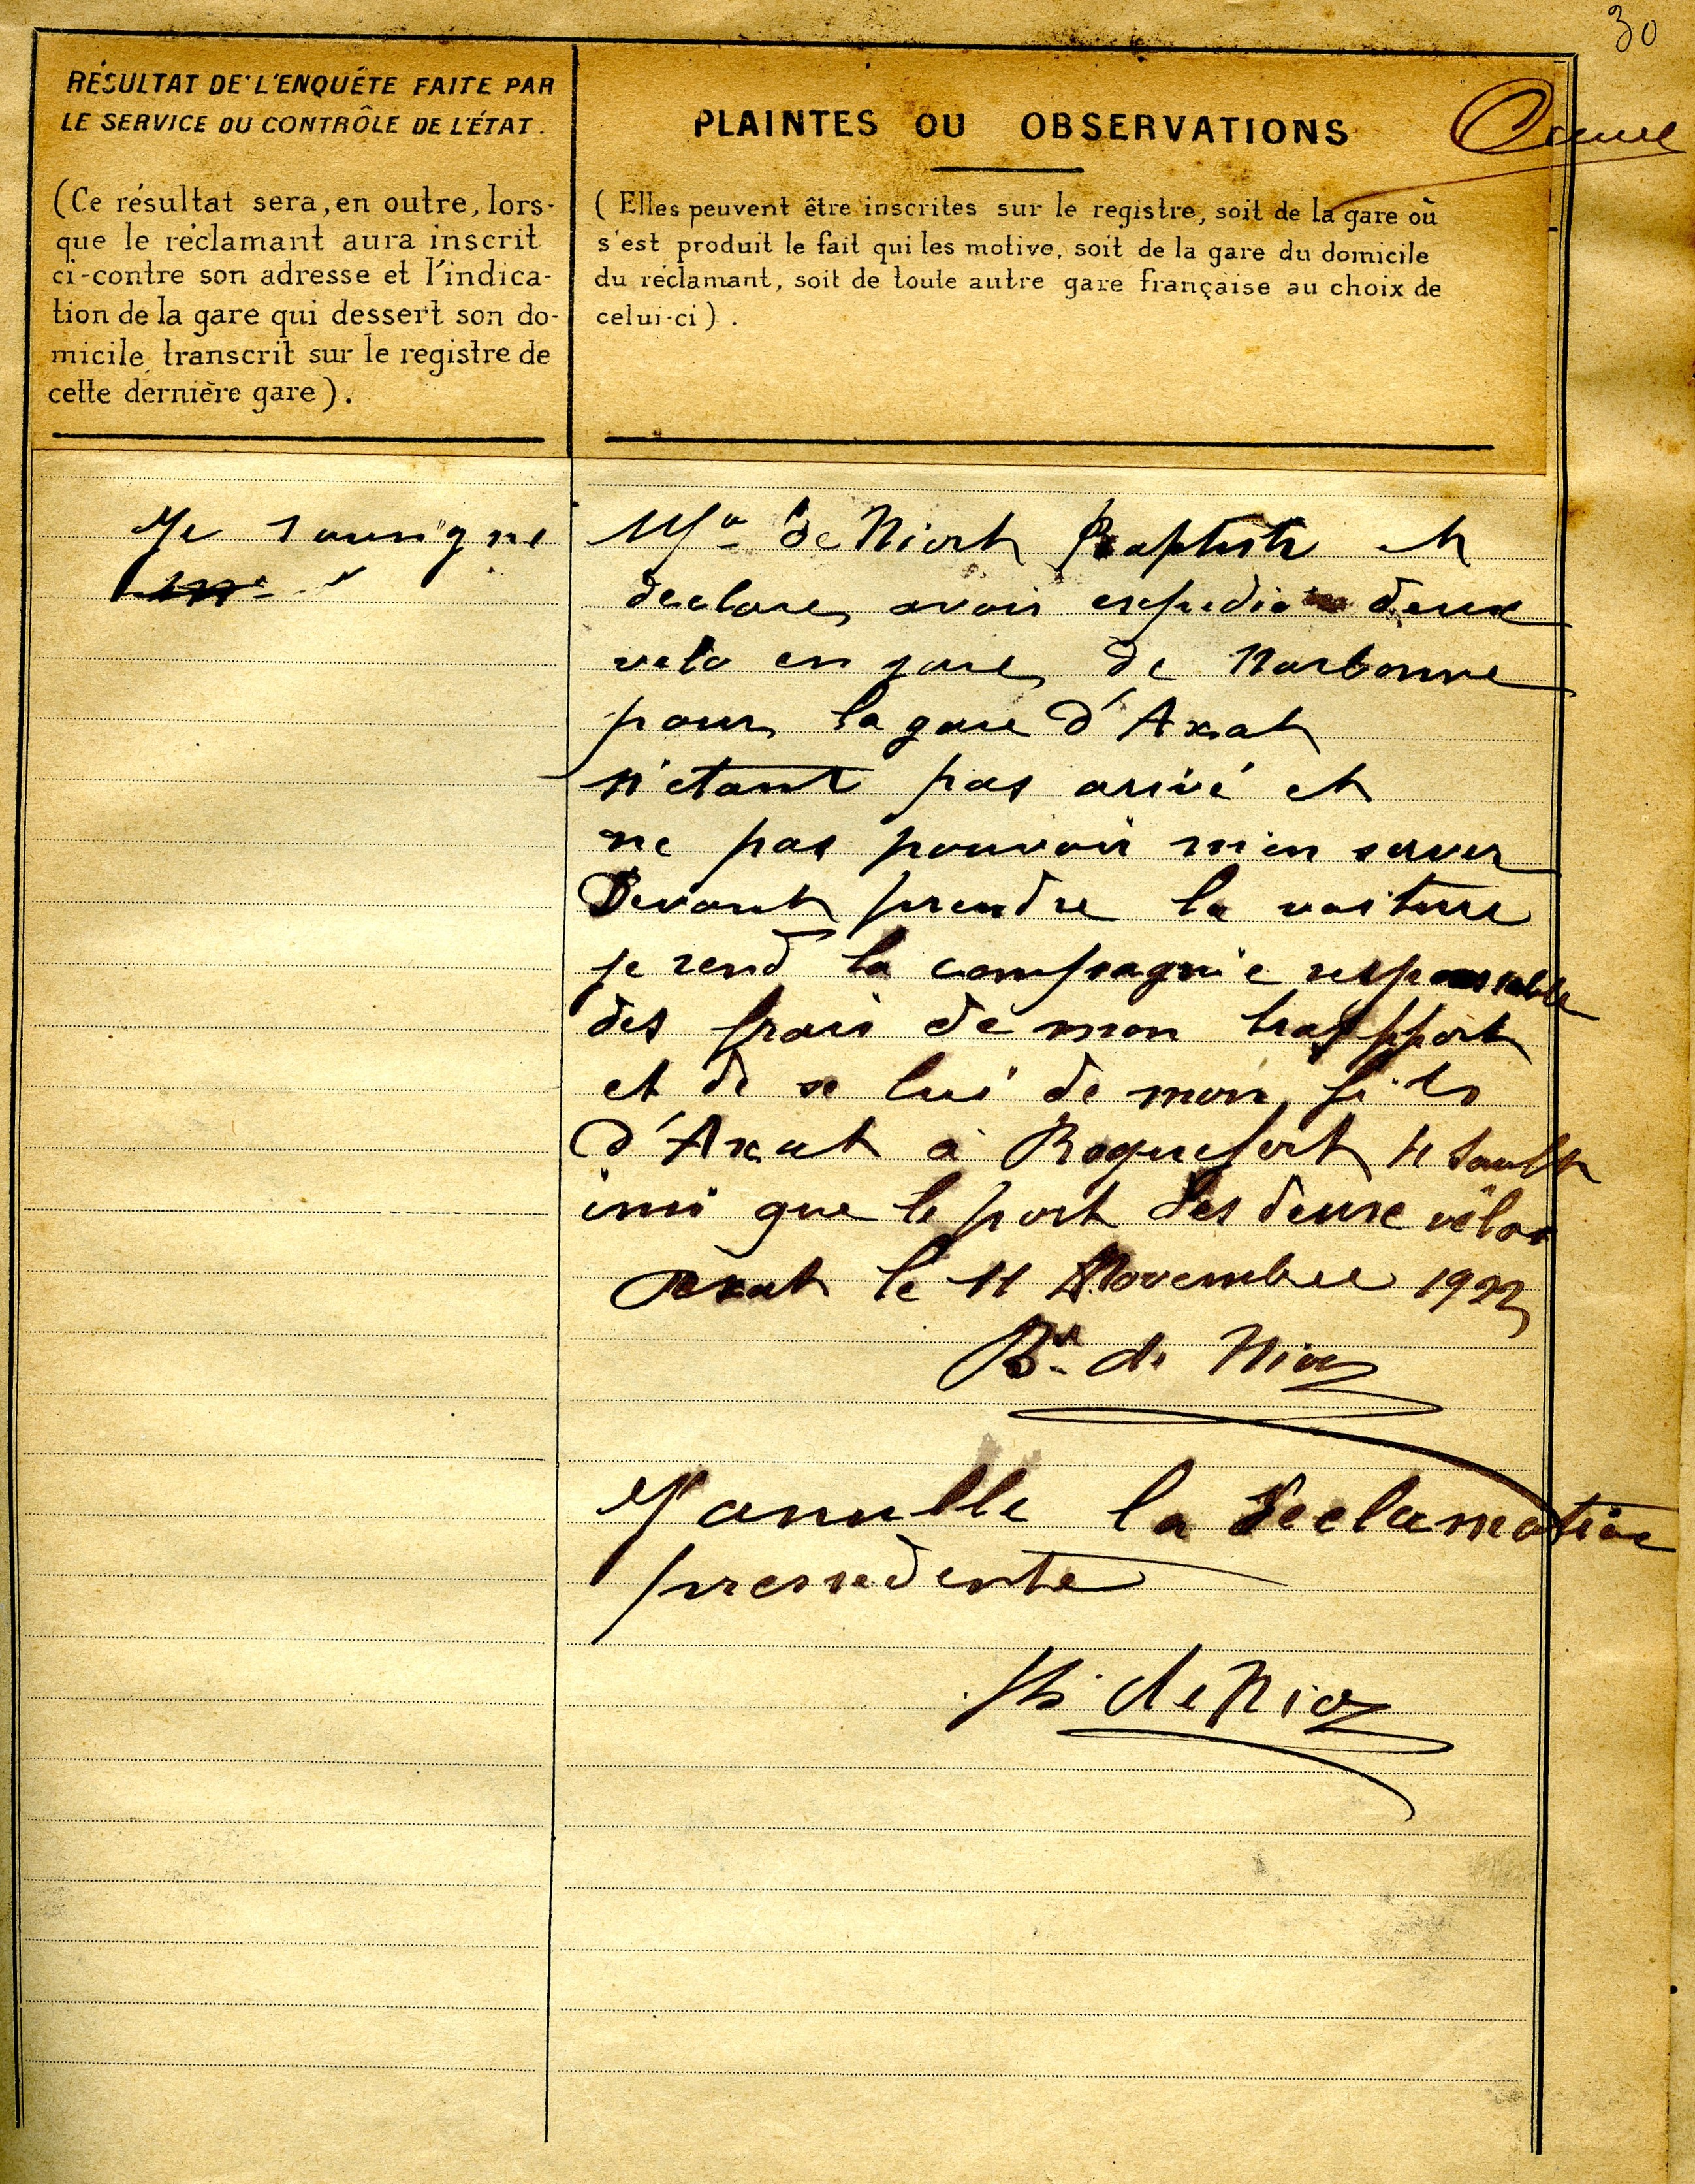 30
RÉSULTAT DE L'ENQUÊTE FAITE PAR
LE SERVICE DU CONTRÔLE DE L'ÉTAT.
(Ce résultat sera, en outre, lors-
que le réclamant aura inscrit
ci-contre son adresse et l'indica-
tion de la gare qui dessert son do-
micile, transcrit sur le registre de
cette dernière gare).
PLAINTES OU OBSERVATIONS
(Elles peuvent être inscrites sur le registre, soit de la gare où
s'est produit le fait qui les motive, soit de la gare du domicile
du réclamant, soit de toute autre gare française au choix de
celui-ci).
Je sousigne
Mr de Niort Baptiste et
declare avoir expedie deux
velo en gare de Narbonne
pour la gare d'Axat
n'etant pas arivé et
ne pas pouvoir m'en server
Devant prendre la voiture
je rend la compagnie responsable
des frais de mon traspport
et de se lui de mon fils
d'Axat à Roquefort de Sault
insi que le port des deux vélos
Axat le 11 Novembre 1922
Bte de Niort
J'anulle la declamation
pressedente
de Niort